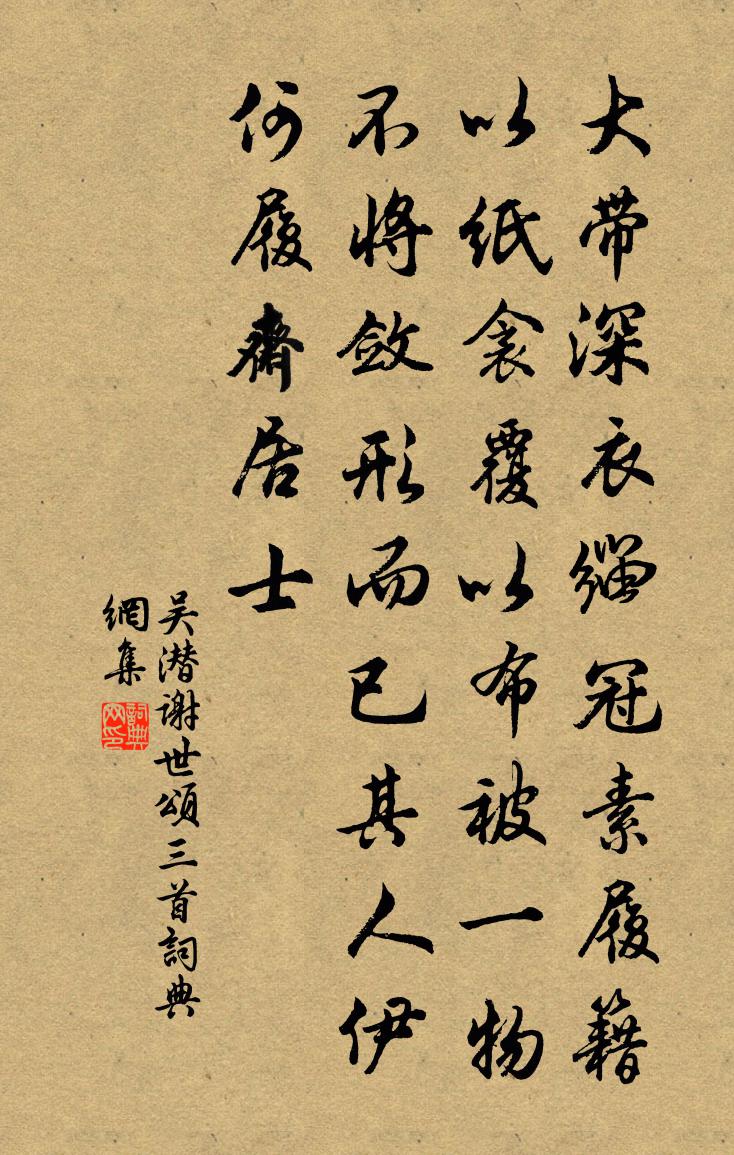 大带深衣缁冠素履籍
以纸衾覆以布被一物
不将敛形而已其人伊
何履斋居士
吴潜谢世颂三首词典
網集
詞典網印